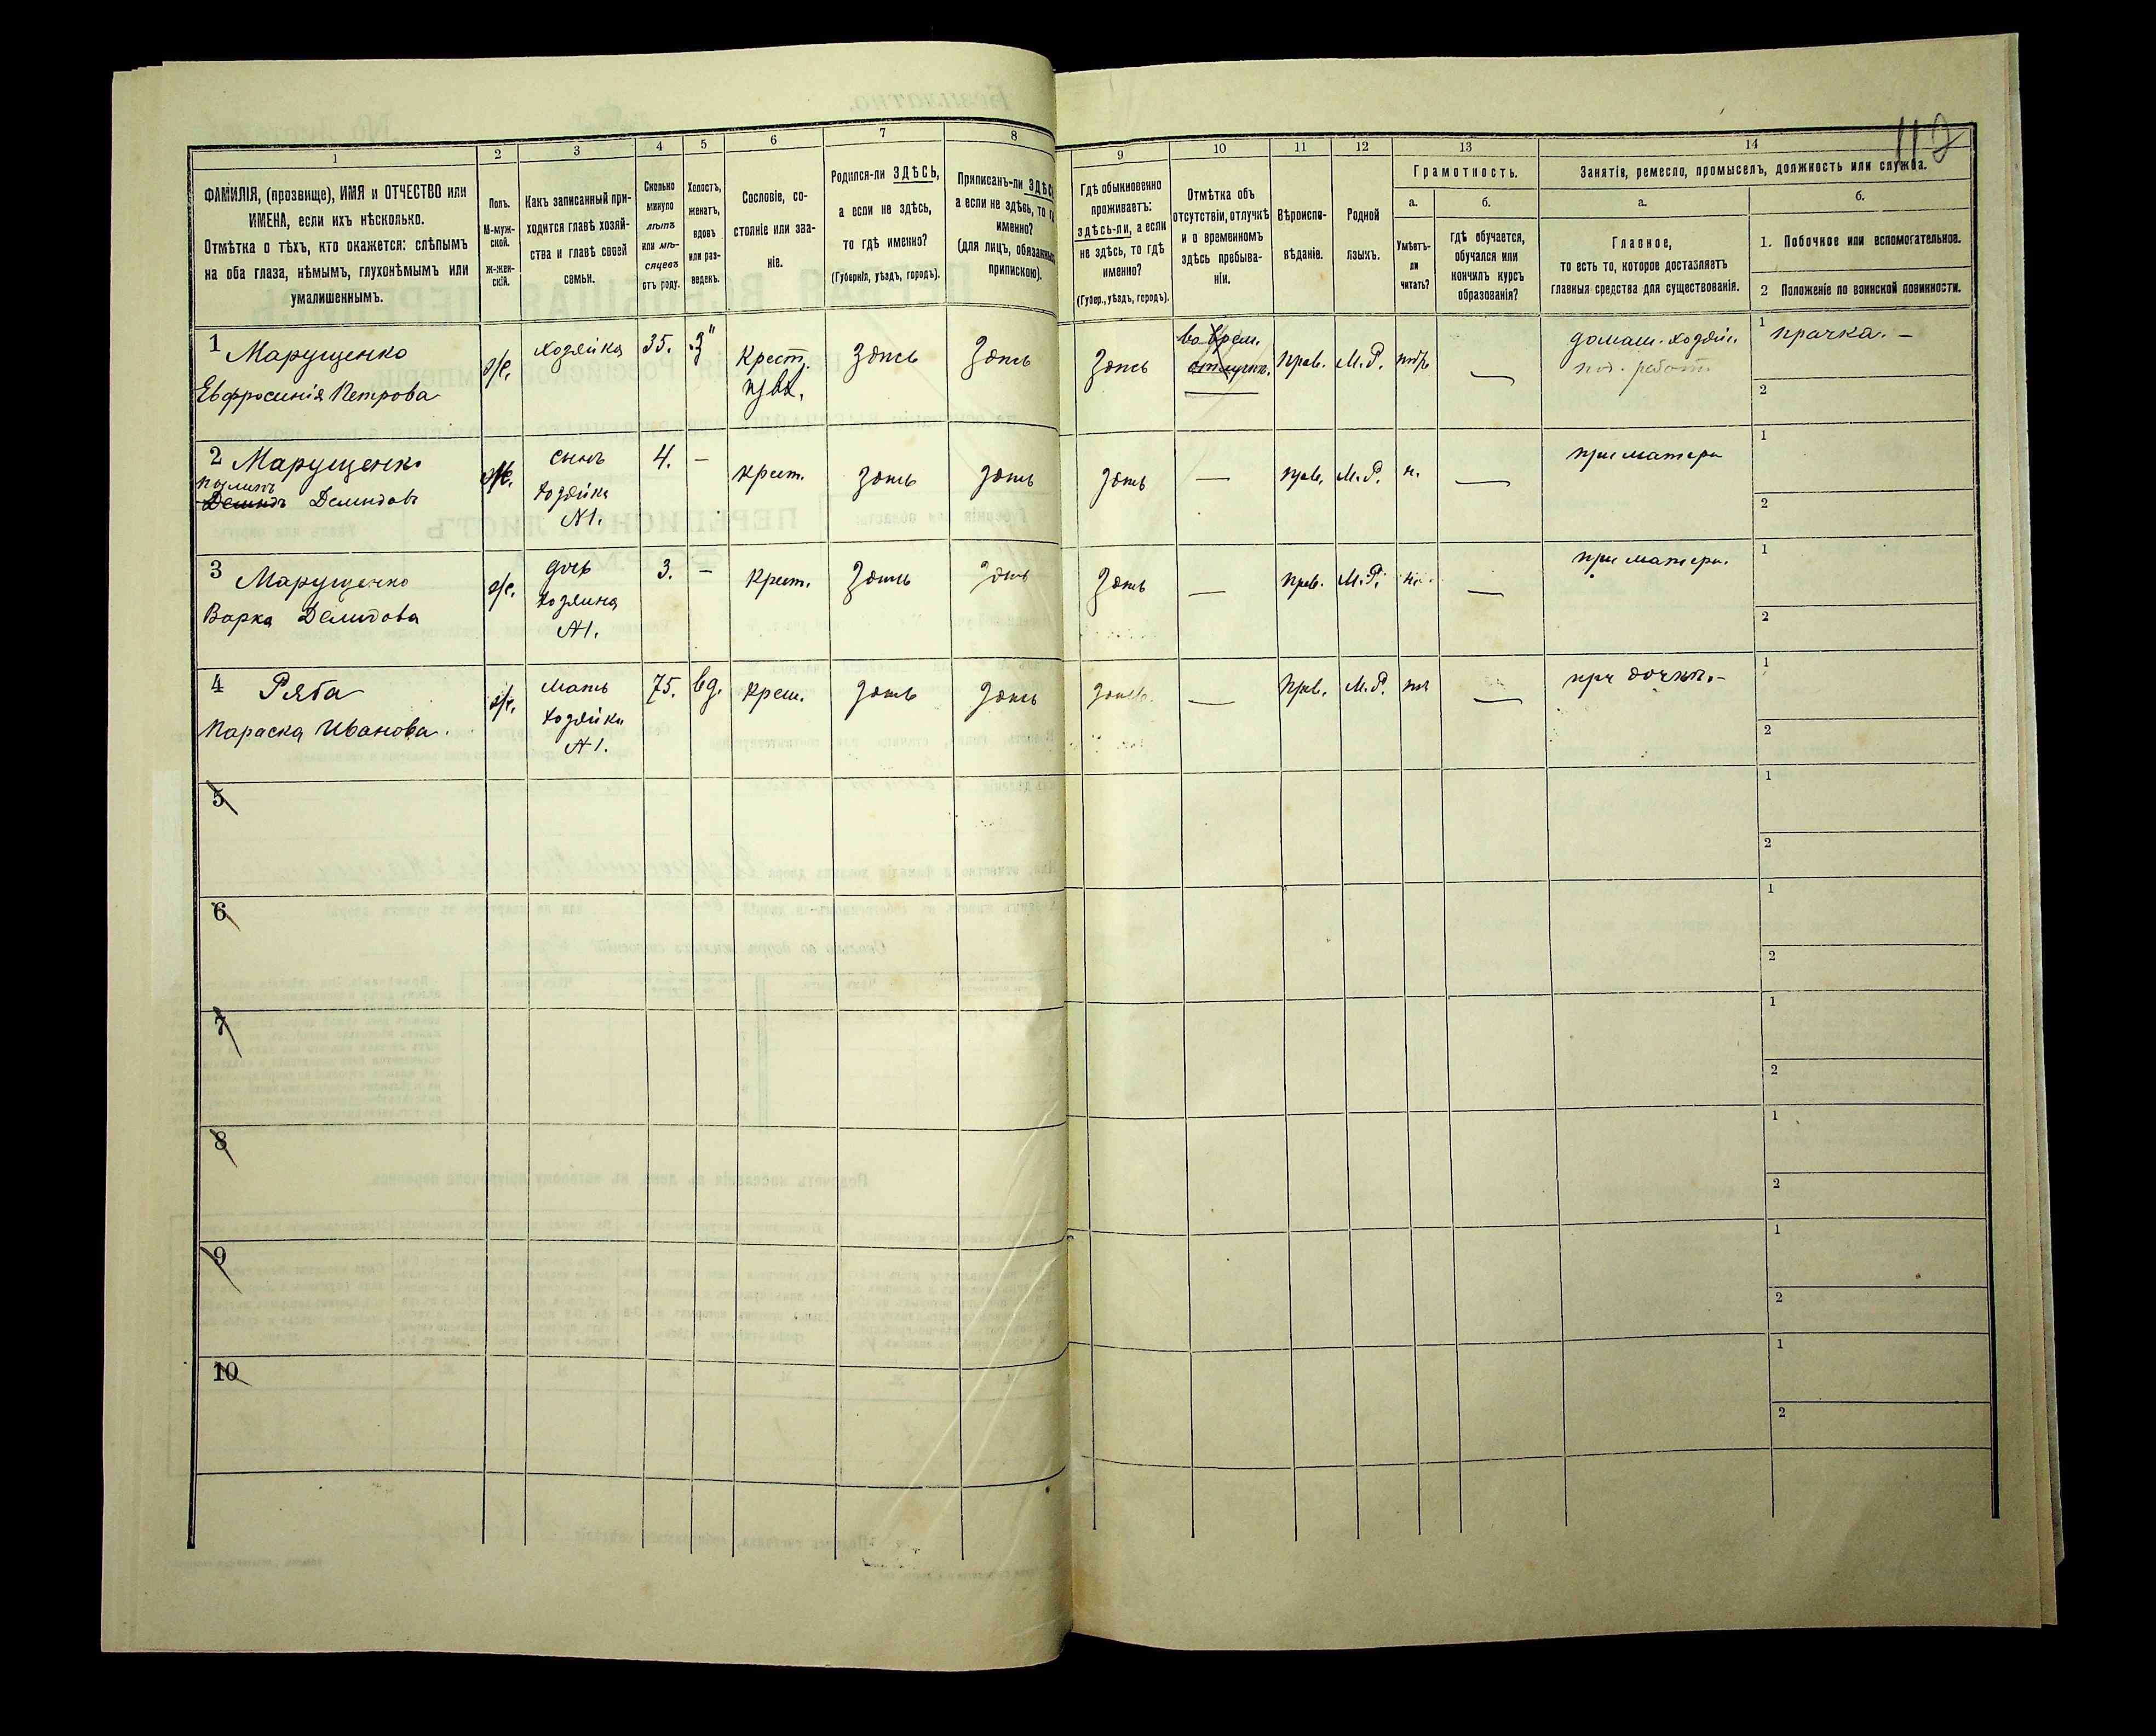 112
1
2
3
4
5
6
7
8
9
10
11
12
13
14
ФАМИЛІЯ, (прозвище), ИМЯ и ОТЧЕСТВО или
ИМЕНА, если ихъ нѣсколько.
Отмѣтка о тѣхъ, кто окажется: слѣпымъ
на оба глаза, нѣмымъ, глухонѣмымъ или
умалишеннымъ.
Полъ.
М-муж-
ской.
ж-жен-
скій.
Какъ записанный при-
ходится главѣ хозяй-
ства и главѣ своей
семьи.
Сколько
минуло
лѣтъ
или мѣ-
сяцевъ
отъ роду.
Холостъ,
женатъ,
вдовъ
или раз-
веденъ.
Сословіе, со-
стояніе или зва-
ніе.
Родился-ли ЗДѢСЬ,
а если не здѣсь,
то гдѣ именно?
(Губернія, уѣздъ, городъ).
Приписанъ-ли ЗДѢСЬ
а если не здѣсь, то
именно?
(для лицъ, обязанныхъ
припискою).
Гдѣ обыкновенно
проживаетъ:
здѣсь-ли, а если
не здѣсь, то гдѣ
именно?
(Губер., уѣздъ, городъ).
Отмѣтка объ
отсутствіи, отлучкѣ
и о временномъ
здѣсь пребыва-
ніи.
Вѣроиспо-
вѣданіе.
Родной
языкъ.
Грамотность.
а.
Умѣетъ-
ли
читать?
б.
гдѣ обучается,
обучался или
кончилъ курсъ
образованія?
Занятія, ремесло, промыселъ, должность или служба.
а.
Главное,
то есть то, которое доставляетъ
главныя средства для существованія.
б.
1. Побочное или вспомогательное.
2 Положеніе по воинской повинности.
1 Марущенко
Евфросинія Петрова
ж.
хозяйка
35.
з
Крест.
здѣсь
здѣсь
здѣсь
во врем.
отлучк.
прав.
М.Р.
нѣтъ
—
домаш. хозяй.
1 прачка. —
2
2 Марущенко
Демидъ Демидовъ
сынъ
хозяйки
№1.
4.
—
крест.
здѣсь
здѣсь
здѣсь
—
прав.
М.Р.
н.
—
при матери
1
2
3 Марущенко
Варка Демидова
ж.
дочь
хозяина
№1.
3.
—
крест.
здѣсь
здѣсь
здѣсь
—
прав.
М.Р.
н.
—
при матери.
1
2
4 Ряба
Параска Иванова.
ж.
мать
хозяйки
№1.
75.
вд.
крест.
здѣсь
здѣсь
здѣсь.
—
прав.
М.Р.
нѣт
—
при дочкѣ.—
1
2
5
1
2
6
1
2
7
1
2
8
1
2
9
1
2
10
1
2